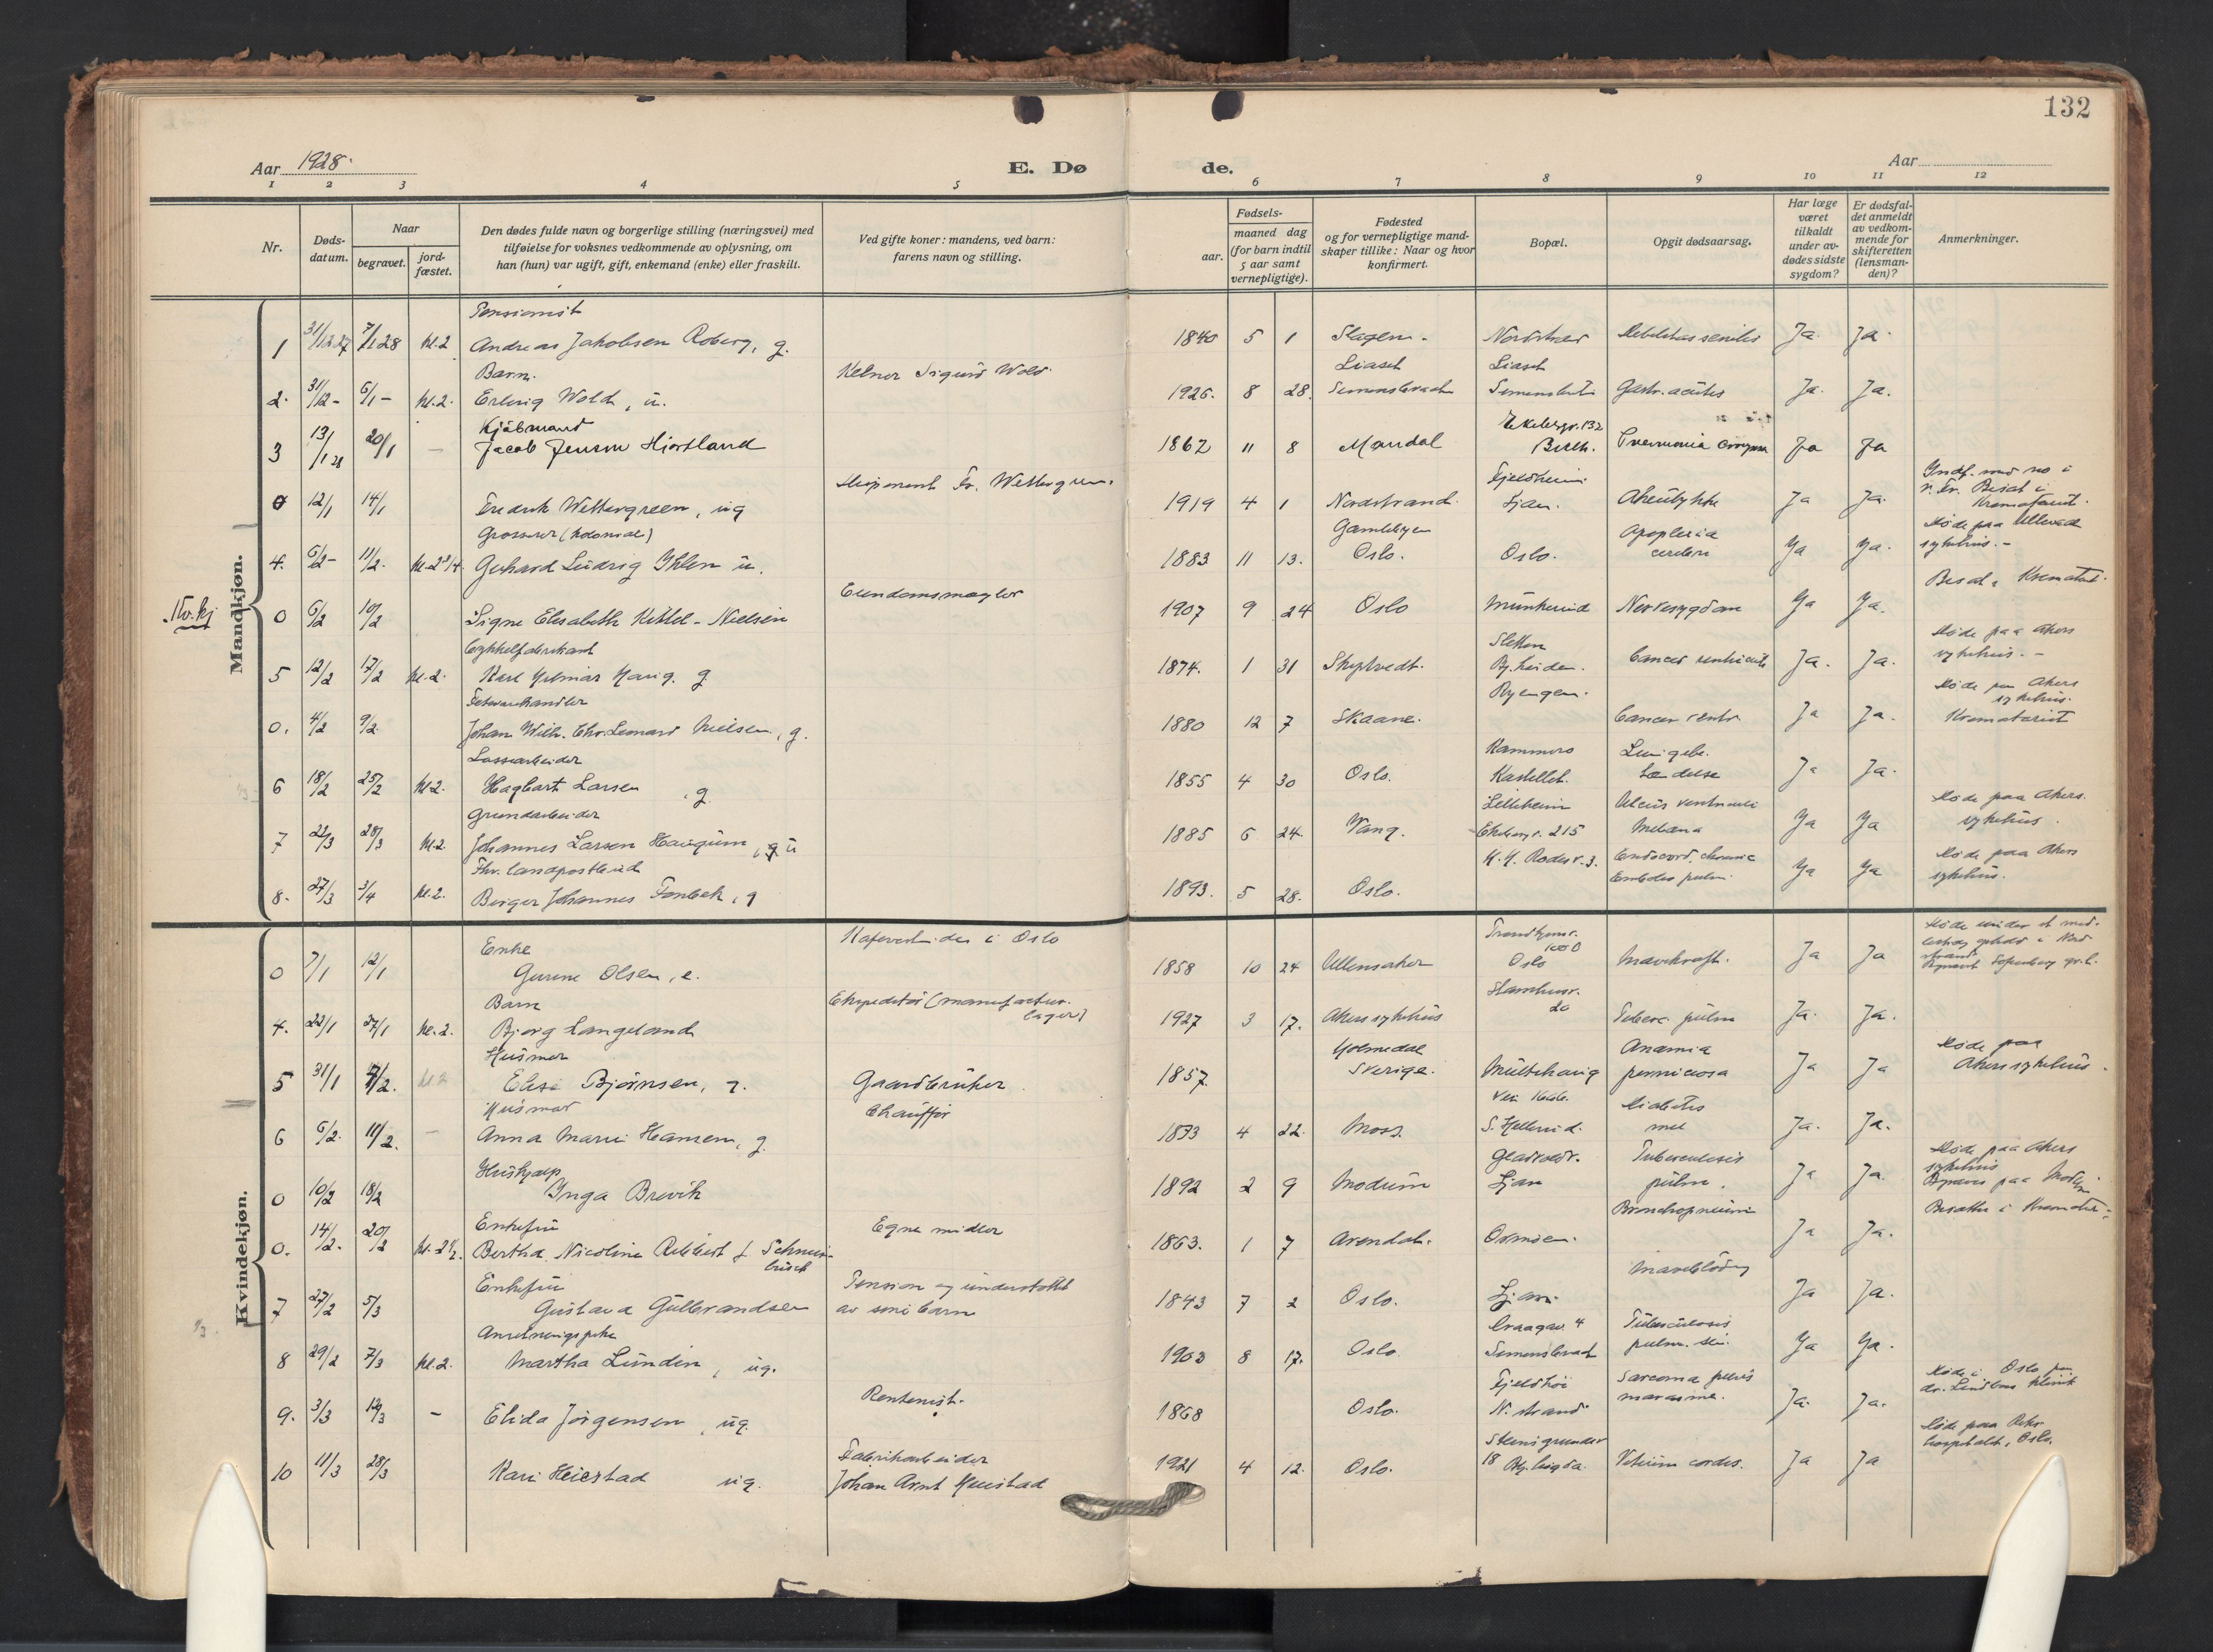 132
Aar 1928.
E. Dø
de.
Aar
1 2 3 4 5 6 7 8 9 10 11 12
Nr.
Døds-
datum.
Naar
begravet.
jord-
fæstet.
Den dødes fulde navn og borgerlige stilling (næringsvei) med
tilføielse for voksnes vedkommende av oplysning, om
han (hun) var ugift, gift, enkemand (enke) eller fraskilt.
Ved gifte koner: mandens, ved barn:
farens navn og stilling.
aar.
Fødsels-
maaned dag
(for barn indtil
5 aar samt
vernepligtige).
Fødested
og for vernepligtige mand-
skaper tillike: Naar og hvor
konfirmert.
Bopæl.
Opgit dødsaarsag.
Har læge
været
tilkaldt
under av-
dødes sidste
sygdom?
Er dødsfal-
det anmeldt
av vedkom-
mende for
skifteretten
(lensman-
den)?
Anmerkninger.
Mandkjøn.
Pensionist
1 31/12 27 7/1 28 kl. 2 Andreas Jakobsen Roberg, g. 1840 5 1 Slagen. Debilitas senilis Ja. Ja.
Barn. Kelner Sigurd Wold. Liaset Liaset
2. 31/12 - 6/1 - kl. 2. Erling Wold, u. 1926. 8 28. Simensbraaten Gastr. acutis Ja. Ja.
Kjøbmand Ekebergv. 132
3 13/1 28 20/1 - Jacob Jensen Hjortland 1862 11 8 Mandal Bekk. Ja Ja
Disponent Fr. Wettergreen. Fjeldheim
0 12/1 14/1 Fredrik Wettergreen, ug 1919 4 1 Nordstrand. Ljan. Ja Ja.
Grosserer (kolonial) Gamlebyen Apoplexia Døde paa Ullevaal
4. 6/2 - 11/2. kl. 2 3/4. Gerhard Ludvig Ihlen u. 1883 11 13. Oslo. Oslo. cerebri Ja Ja. sykehus. -
Kv.kj
Eiendomsmægler
0 6/2 10/2 Signe Elisabeth Kittel - Nielsen 1907 9 24 Oslo Munkerud Nervesygdom Ja Ja.
Cykkelfabrikant Sletten Døde paa Akers
5 12/2 17/2 kl. 2. Karl Hilmar Haug. g 1874. 1 31 Skiptvedt. Ja. Ja. sykehus. -
Fetevarehandler Ryengen. Døde paa Akers sykehus.
0. 4/2 9/2. Johan Wilh. Chr. Leonard Nielsen, g. 1880 12 7 Skaane. Cancer ventr. Ja Ja. Krematoriet
Lossearbeider
6 18/2 25/2 kl. 2. Hagbart Larsen, g 1855 4 30 Oslo. Kastellet. Ja Ja.
Grundarbeider Lilleheim Ulcus ventriculi Døde paa Akers.
7 22/3 28/3 kl. 2. Johannes Larsen Haugum, u 1885 6 24. Vang. Ekebergv. 215 Melæna Ja Ja sykehus.
Fhv. landpostbud Døde paa Akers
8. 27/3 3/4 kl. 2. Birger Johannes Fonbek, g 1893. 5 28. Oslo. Ja Ja sykehus.
Kvindekjøn.
Enke i Oslo
0 7/1 12/1 Gurine Olsen, e. 1858 10 24 Ullensaker Oslo Mavekræft. Ja Ja
Barn Ekspeditør (manufactur. lager)
4. 22/1 27/1 kl. 2. Bjørg Langeland 1927 3 17. Akers sykehus 20 Tuberc. pulm Ja. Ja.
Husmor Holmedal Anæmia Døde paa
5 31/1 4/2. kl 2 Elise Bjørnsen, g. Gaardbruker 1857. Sverige. Multehaug perniciosa Ja Ja Akers sykehus.
Husmor Chauffør Diabetes
6 6/2. 11/2. - Anna Marie Hansen, g. 1873 4 22. Moss. mel Ja. Ja.
Hushjælp Tuberculosis Døde paa Akers
0 10/2 18/2 Inga Brevik 1892 2 9 Modum Ljan pulm. Ja Ja. sykehus
Enkefru Egne midler Bronchopneumi
0. 14/2. 20/2 kl. 2 1/2. Bertha Nicoline Rebbert f. Schnei- 1863. 1 7 Arendal. Ormøen. Ja Ja.
Enkefru Pension og understøttet Maveblødn
7 27/2 5/3 Gustava Gulbrandsen av sine barn 1843 7 2 Oslo. Ljan. Ja Ja.
Anretningspike Tuberculosis
8 29/2 7/3 kl. 2. Martha Lundin, ug. 1903 8 17. Oslo. Simensbraat pulm. Ja Ja.
Rentenist. Fjeldhøi Sarcoma pelvis Døde i Oslo paa
9. 3/3 12/3 - Elida Jørgensen, ug. 1868 Oslo. N. strand. marasme. Ja. Ja. dr. klinik
Fabrikarbeider
10 11/3 28/3 Kari Heiestad ug. Johan Arnt Heiestad 1921 4 12. Oslo. 18 Vitium cordis. Ja Ja hospitalet, Oslo.